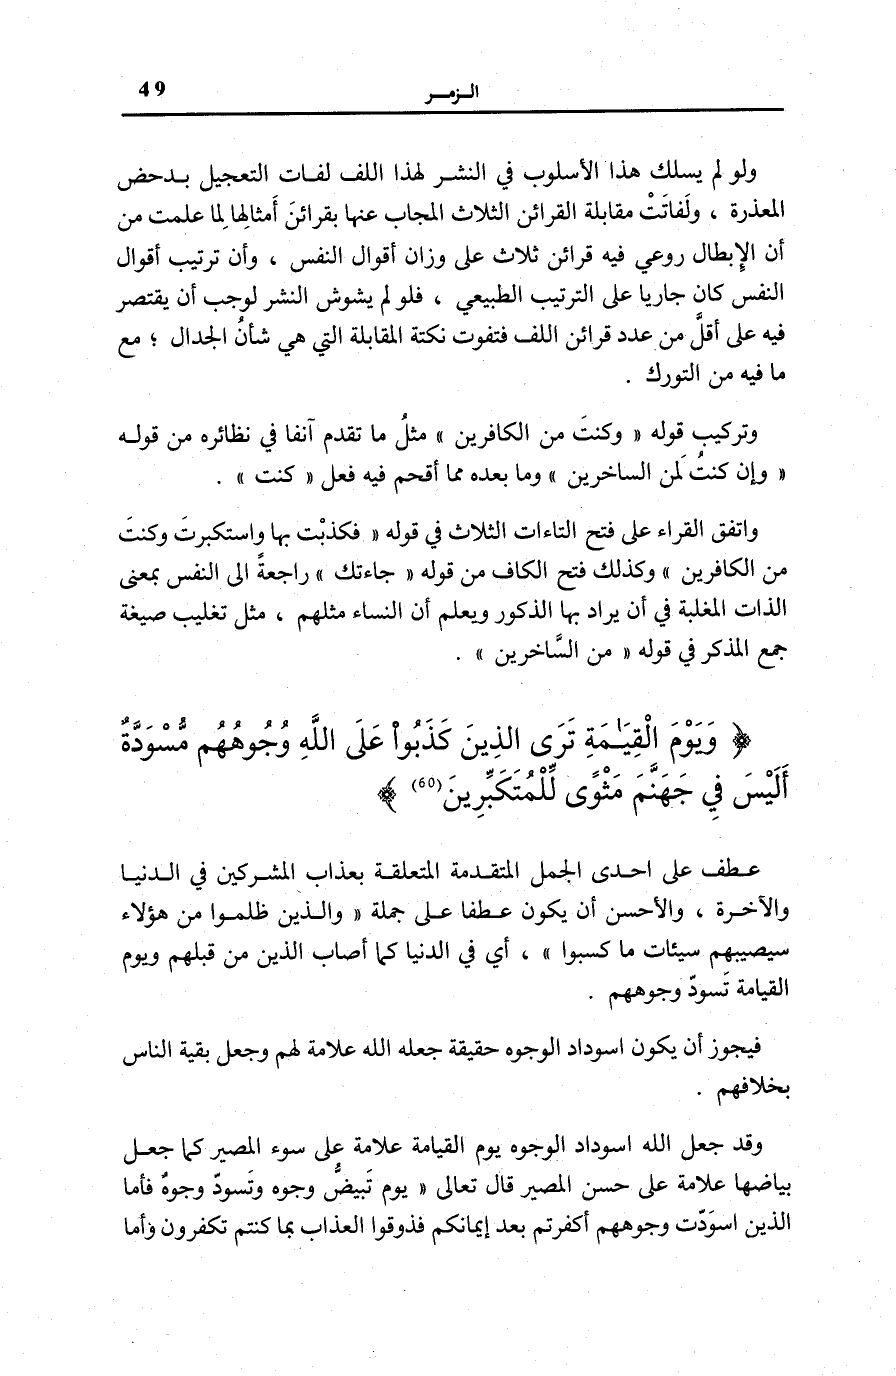 الـزمـــر 49
ولو لم يسلك هذا الأسلوب في النشـر لهذا اللف لفـات التعجيل بـدحض
المعذرة ، ولَفاتَتْ مقابلة القرائن الثلاث المجاب عنها بقرائنَ أمثالِها لِما علمت من
أن الإبطال روعي فيه قرائن ثلاث على وزان أقوال النفس ، وأن ترتيب أقوال
النفس كان جاريا على الترتيب الطبيعي ، فلو لم يشوش النشر لوجب أن يقتصر
فيه على أقلَّ من عدد قرائن اللف فتفوت نكتة المقابلة التي هي شأنُ الجدال ؛ مع
ما فيه من التورك .
وتركيب قوله « وكنتَ من الكافرين » مثلُ ما تقدم آنفا في نظائره من قولـه
« وإن كنتُ لَمن الساخرين » وما بعده مما أقحم فيه فعل « كنت » .
واتفق القراء على فتح التاءات الثلاث في قوله « فكذبْت بها واستكبرتَ وكنتَ
من الكافرين » وكذلك فتح الكاف من قوله « جاءتك » راجعةً الى النفس بمعنى
الذات المغلبة في أن يراد بها الذكور ويعلم أن النساء مثلهم ، مثل تغليب صيغة
جمع المذكر في قوله « من السَّاخرين » .
﴿ وَيَوْمَ الْقِيَـٰمَةِ تَرَى الذِينَ كَذَبُواْ عَلَى اللَّهِ وُجُوهُهُم مُّسْوَدَّةٌ
أَلَيْسَ فِي جَهَنَّمَ مَثْوًى لِّلْمُتَكَبِّرِينَ (60) ﴾
عـطف على احـدى الجمل المتقـدمة المتعلقـة بعذاب المشـركين في الـدنيـا
والآخـرة ، والأحسن أن يكون عـطفا عـلى جملة « والـذين ظلمـوا من هؤلاء
سيصيبهم سيئات ما كسبوا » ، أي في الدنيا كما أصاب الذين من قبلهم ويوم
القيامة تَسودّ وجوههم .
فيجوز أن يكون اسوداد الوجوه حقيقة جعله الله علامة لهم وجعل بقية الناس
بخلافهم .
وقد جعل الله اسوداد الوجوه يوم القيامة علامة على سوء المصير كما جعـل
بياضها علامة على حسن المصير قال تعالى « يوم تَبيضُّ وجوه وتَسودّ وجوهٌ فأما
الذين اسوَدّت وجوههم أكفرتم بعد إيمانكم فذوقوا العذاب بما كنتم تكفرون وأما